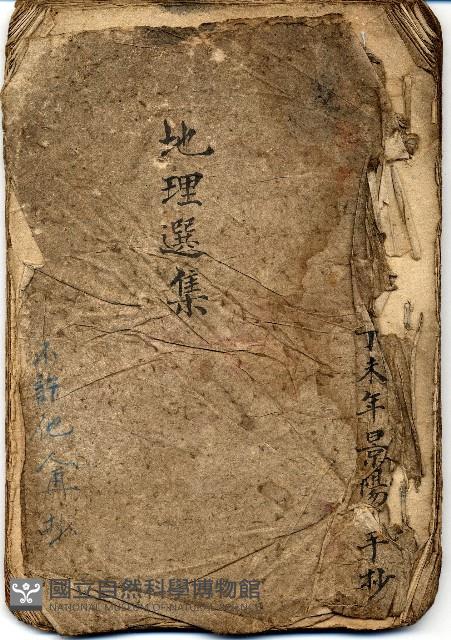 丁未年景陽手抄
地理選集
不許他人再抄
國立自然科學博物館
NATIONAL MUSEUM OF NATURAL SCIENCE